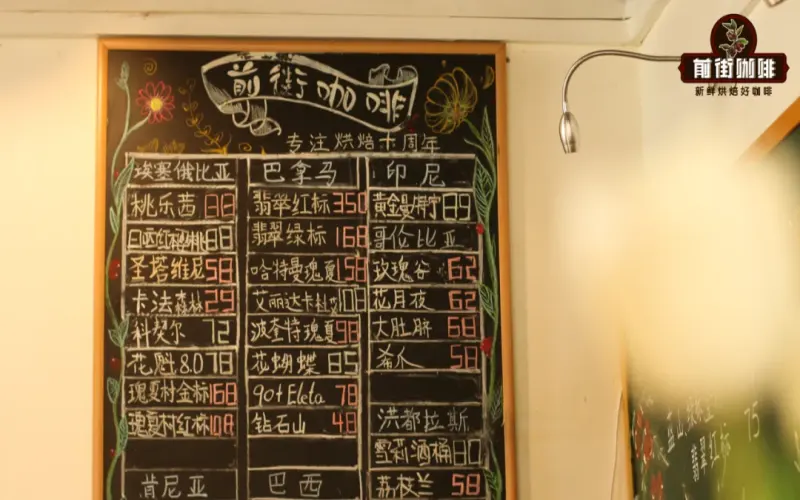 前街咖啡
新鲜烘焙好咖啡
前街咖啡
专注烘焙十周年
埃塞俄比亚 巴拿马 印尼
桃乐茜 88 翡翠红标 350 黄金曼特宁 89
88 翡翠绿标 168 哥伦比亚
圣塔维尼 58 哈特曼瑰夏 158 玫瑰谷 62
卡法森林 29 艾丽达卡杜艾 108 花月夜 62
科契尔 72 波奎特瑰夏 98 大肚脐 68
花魁8.0 78 花蝴蝶 85 希爪 58
瑰夏村金标 168 90+ Eleta 78
瑰夏村红标 108 钻石山 48 洪都拉斯
雪莉酒桶 80
肯尼亚 巴西 荔枝兰 58
翡翠红标 75